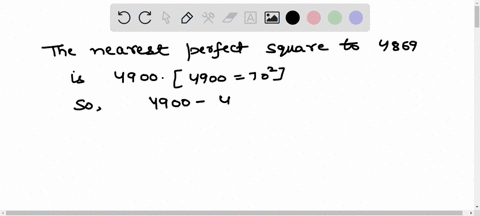 The nearest perfect square to 4869
is 4900. [4900 = 70²]
So, 4900 - 4